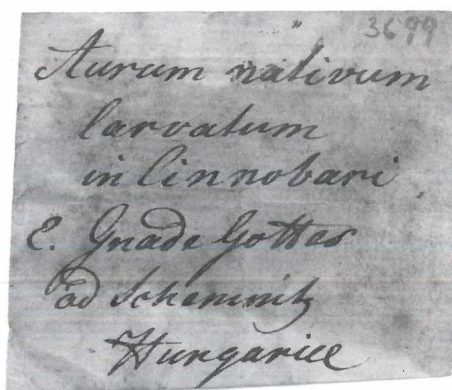 3699
Aurum nativum
larvatum
in Cinnobari
E. Gnade Gottes
ad Schemnitz
Hungariae